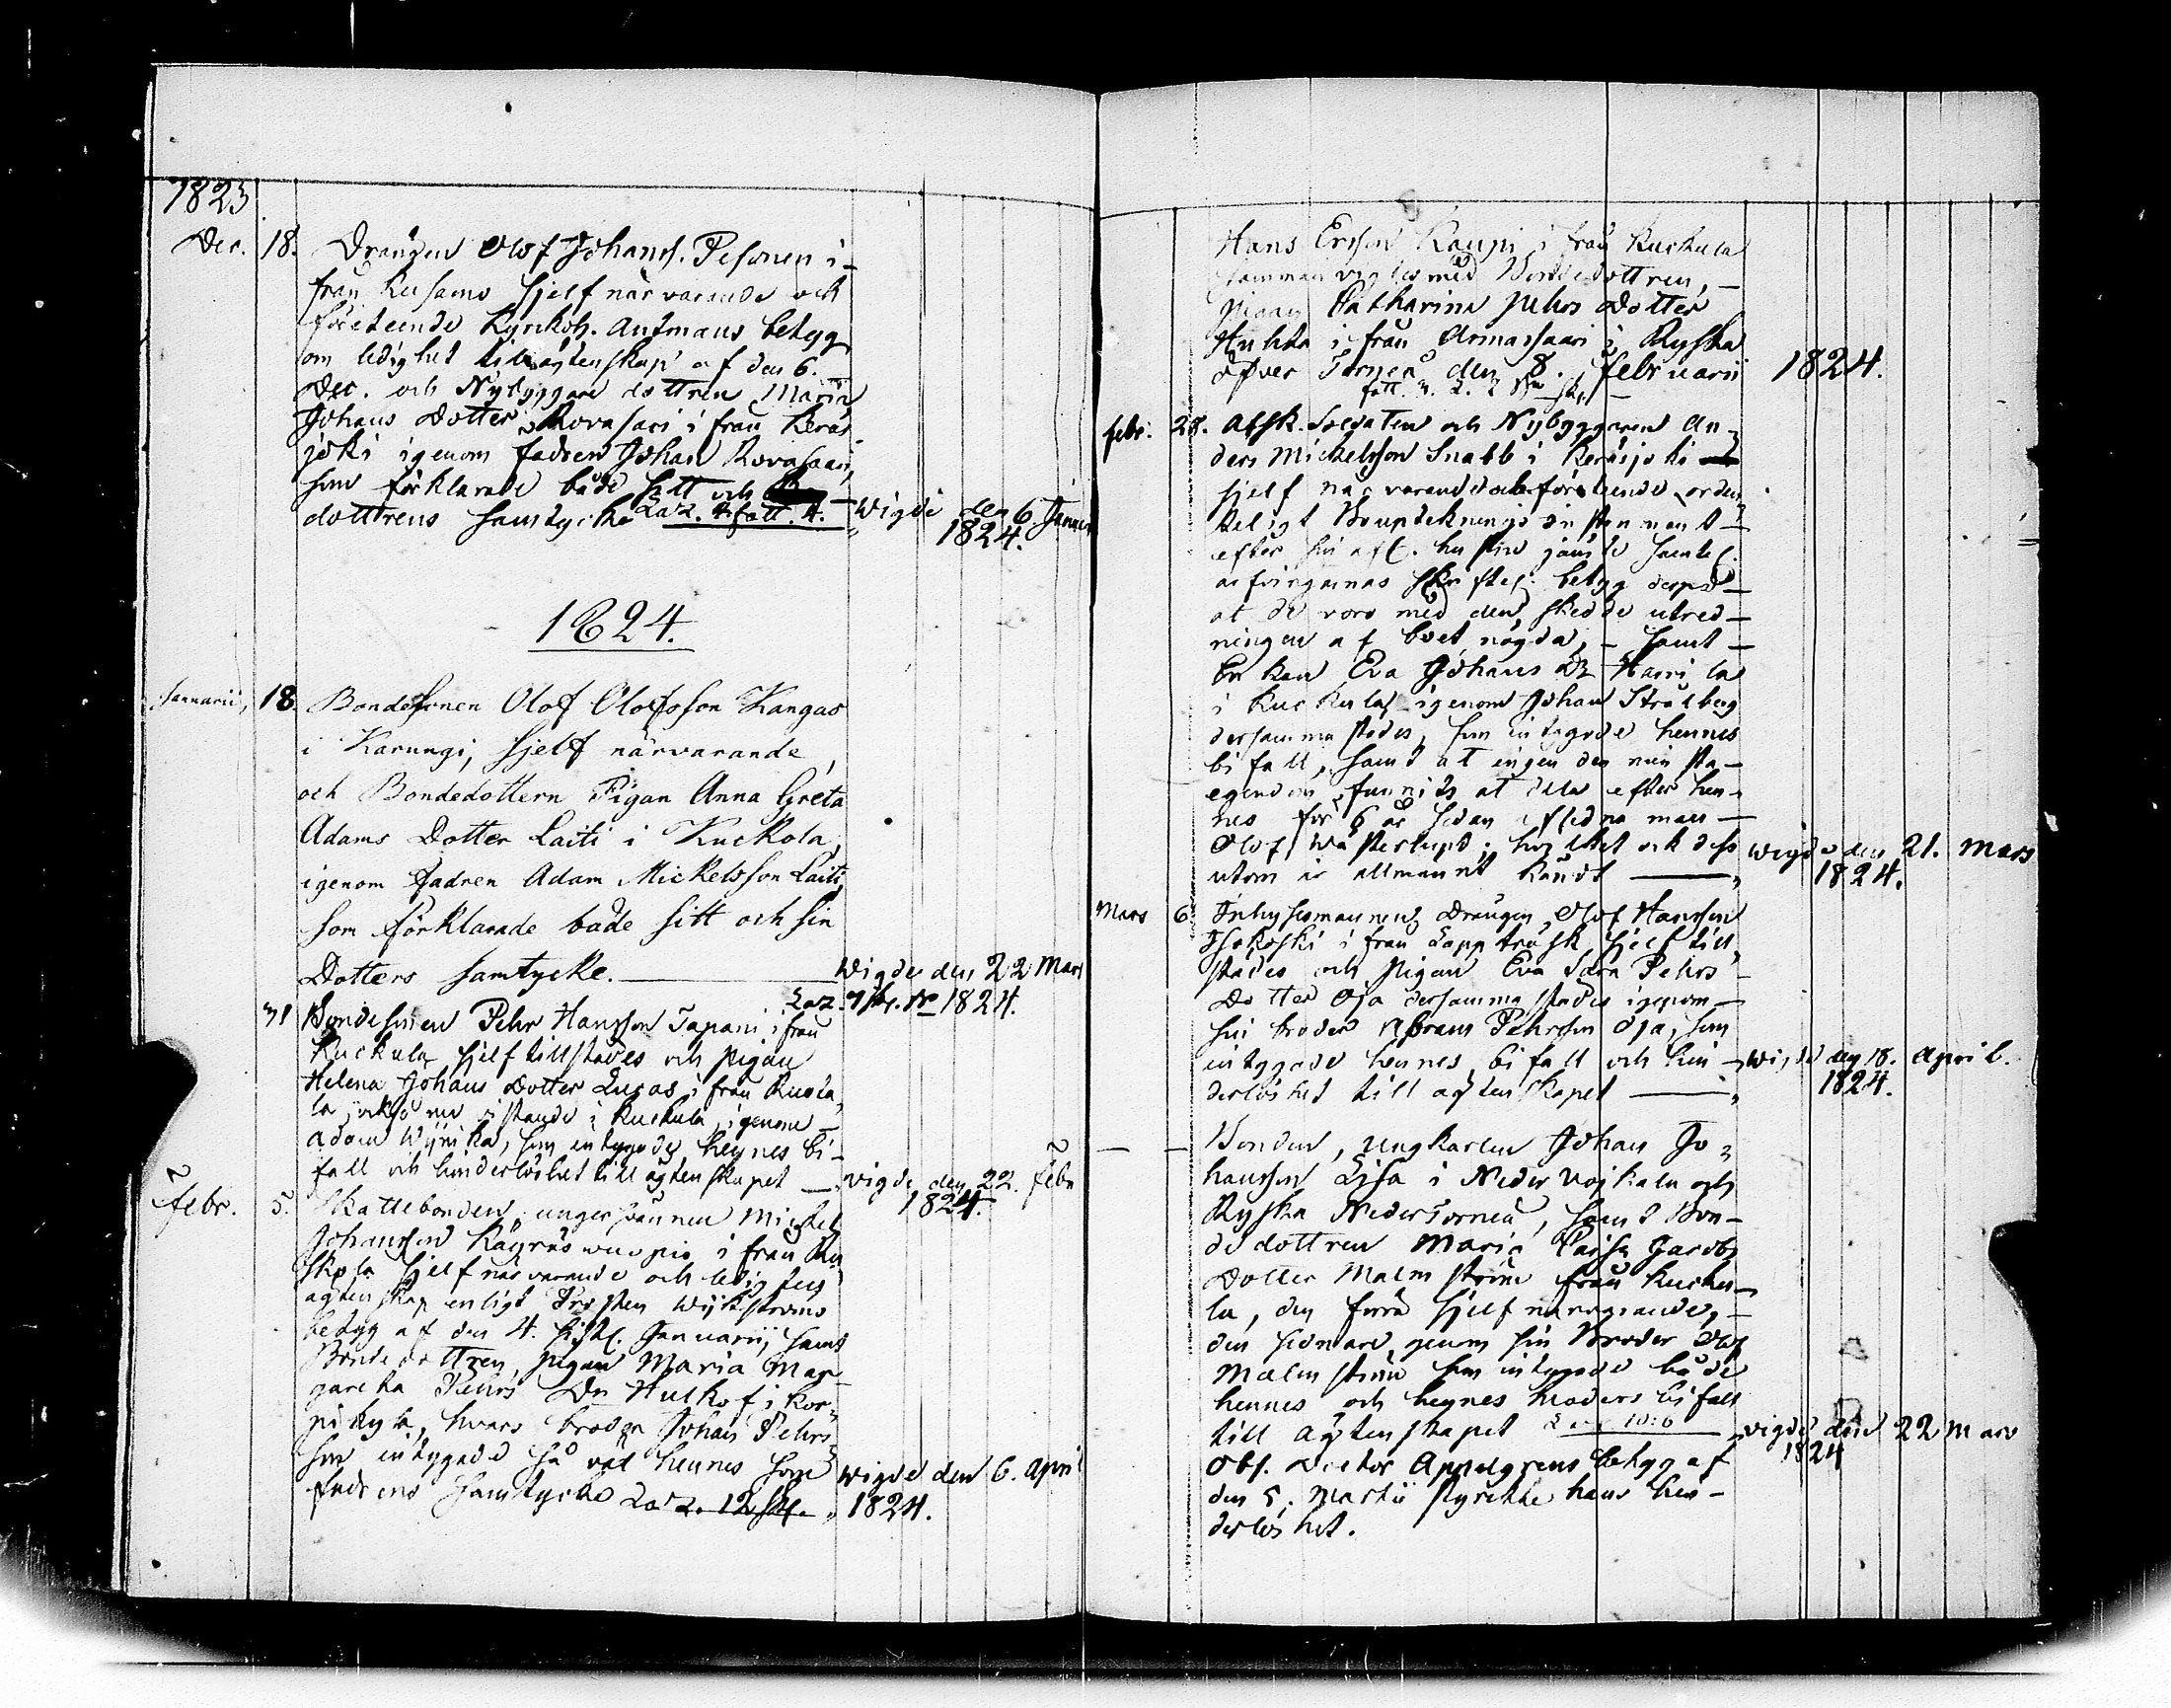 1823
Dec. 18. Drängen Olof Johanss. Pesonen i-
från Kusamo sjelf närvarande och
företeende Kyrkoh. Antmans betyg
om ledighet till ägtenskap af den 6.
Dec. och Nybyggare dottren Maria
Johans Dotter Rovasari i från Keräs
joki igenom fadren Johan Rovasaari,
som förklarade både sitt och
dottrens samtycke Laz. 4. wigde den 6 Januar
1824.
1824.
Januarii, 18. Bondesonen Olof Olofsson Kangas
i Karungi, sjelf närvarande
och Bondedottern Pigan Anna Greta
Adams Dotter Laiti i Kuckola,
igenom fadren Adam Mickelsson Laiti
som förklarade både sitt och sin
Dotters samtycke. Wigde den 22 Mars
Laz. 1824.
31 Bondesonen Pehr Hansson Tapani i från
Kuckula sjelf tillstädes och pigan
Helena Johans Dotter Lucas i från Kucku-
la i Kuckula, igenom
Adam som intygade hennes bi-
fall och hinderlöshet till ägtenskapet — vigde den 22. Febr
1824.
Febr. 5. Skattebonden, ungersvännen Mickel
Johansson i från Ku
skola sjelf närvarande och ledig till
ägtenskap enligt Prosten Wijkströms
betyg af den 4. Januarii, samt
Bondedottren, pigan Maria Mar-
gareta Pehrs Dr i Kor-
pikylä, hvars broder Johan Pehrs
son intygade så väl hennes som
fadrens samtycke Laz. 12 wigde den 6. April
1824.
Hans Ersson Kaupi i från Kuckula
sammanvigdes med Bondedottren,
pigan Catharina Pehrs Dotter
Huhta i från Armassaari i Ryska
Öfver Torneå den 8. Februarii 1824.
Febr. 28. Afsk. Soldaten och Nybyggaren An-
ders Mickelsson Snabb i Keräsjoki
sjelf närvarande och företeende orden
teligt Boupteknings Instrument
efter sin afl. hustru jämte samtel.
arfvingarnas skriftel. betyg derpå
at de voro med den skedde utred-
ningen af boet nögda, - samt
Enkan Eva Johans Dr
i Kuckula igenom Johan Strålberg
dersammastädes, som intygade hennes
bifall, samt at ingen den minsta
egendom funnits at dela efter hen-
nes för 6 år sedan aflidna man
Olof hvilket och dess wigde den 21. Mars
utom är allmännt kändt 1824.
Mars 6 Inhysesmannen Drängen Olof Hansson
i från Lappträsk sjelf till
städes och pigan Eva Sara Pehrs
Dotter Oja dersammastädes igenom
sin broder Abram Pehrsson Oja, som
intygade hennes bifall och hin- wigde den 18. April.
derlöshet till ägtenskapet 1824.
— — Bonden, ungkarlen Johan Jo-
hansson Lisa i Neder Vojkala och
Ryska NederTorneå, samt Bon-
dedottren Maria Caisa Jacobs
Dotter Malmström från Kucku-
la, den förra sjelf närvarande,
den sednare genom sin Broder Olof
Malmström som intygade både
hennes och hennes moders bifall
till ägtenskapet 10:6 vigde den 22 Mars
1824
Obs. Doctor Appelgrens betyg af
den 5. Martii styrckte hans hin-
derlöshet.